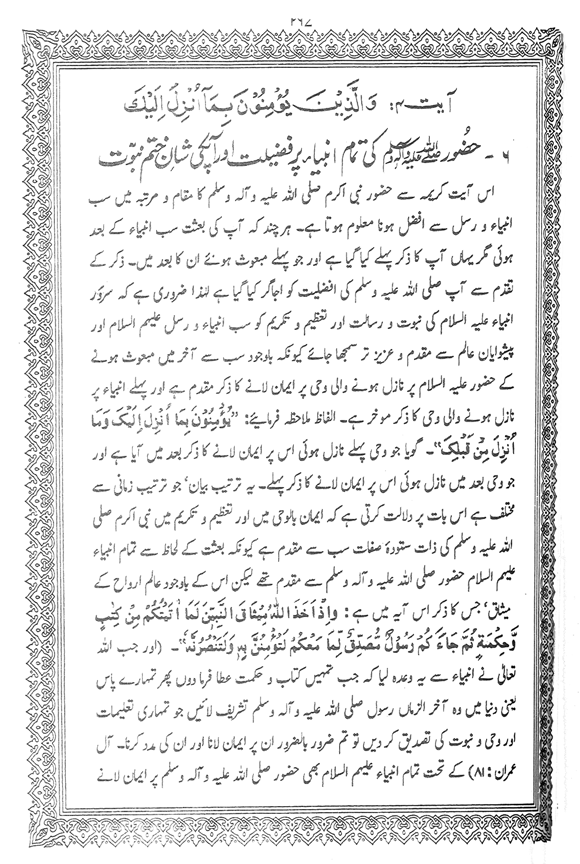 ۲۶۷
آیت ۴: وَالَّذِیْنَ یُؤْمِنُوْنَ بِمَآ اُنْزِلَ اِلَیْكَ
۶ - حضور صلی اللہ علیہ وسلم کی تمام انبیاء پر فضیلت اور آپکی شانِ ختم نبوت
اس آیت کریمہ سے حضور نبی اکرم صلی اللہ علیہ و آلہ وسلم کا مقام و مرتبہ میں سب
انبیاء و رسل سے افضل ہونا معلوم ہوتا ہے۔ ہر چند کہ آپ کی بعثت سب انبیاء کے بعد
ہوئی مگر یہاں آپ کا ذکر پہلے کیا گیا ہے اور جو پہلے مبعوث ہوئے ان کا بعد میں۔ ذکر کے
تقدم سے آپ صلی اللہ علیہ وسلم کی افضلیت کو اجاگر کیا گیا ہے لہٰذا ضروری ہے کہ سرور
انبیاء علیہ السلام کی نبوت و رسالت اور تعظیم و تکریم کو سب انبیاء و رسل علیہم السلام اور
پیشوایان عالم سے مقدم و عزیز تر سمجھا جائے کیونکہ باوجود سب سے آخر میں مبعوث ہونے
کے حضور علیہ السلام پر نازل ہونے والی وحی پر ایمان لانے کا ذکر مقدم ہے اور پہلے انبیاء پر
نازل ہونے والی وحی کا ذکر موخر ہے۔ الفاظ ملاحظہ فرمائیے: ”یُؤْمِنُوْنَ بِمَا أُنْزِلَ اِلَیْكَ وَمَا
اُنْزِلَ مِنْ قَبْلِكَ“۔ گویا جو وحی پہلے نازل ہوئی اس پر ایمان لانے کا ذکر بعد میں آیا ہے اور
جو وحی بعد میں نازل ہوئی اس پر ایمان لانے کا ذکر پہلے۔ یہ ترتیب بیان‘ جو ترتیب زمانی سے
مختلف ہے اس بات پر دلالت کرتی ہے کہ ایمان بالوحی میں اور تعظیم و تکریم میں نبی اکرم صلی
اللہ علیہ وسلم کی ذات ستودۂ صفات سب سے مقدم ہے کیونکہ بعثت کے لحاظ سے تمام انبیاء
علیہم السلام حضور صلی اللہ علیہ و آلہ وسلم سے مقدم تھے لیکن اس کے باوجود عالم ارواح کے
میثاق‘ جس کا ذکر اس آیہ میں ہے: وَاِذْ اَخَذَ اللّٰهُ مِیْثَاقَ النَّبِیّٖنَ لَمَا اٰتَیْتُكُمْ مِنْ كِتٰبٍ
وَّحِكْمَةٍ ثُمَّ جَاءَ كُمْ رَسُوْلٌ مُّصَدِّقٌ لِمَا مَعَكُمْ لَتُؤْمِنُنَّ بِهٖ وَلَتَنْصُرُنَّهٗ“۔ (اور جب اللہ
تعالیٰ نے انبیاء سے یہ وعدہ لیا کہ جب تمہیں کتاب و حکمت عطا فرما دوں پھر تمہارے پاس
یعنی دنیا میں وہ آخر الزماں رسول صلی اللہ علیہ و آلہ وسلم تشریف لائیں جو تمہاری تعلیمات
اور وحی و نبوت کی تصدیق کر دیں تو تم ضرور بالضرور ان پر ایمان لانا اور ان کی مدد کرنا۔ آل
عمران : ۸۱) کے تحت تمام انبیاء علیہم السلام بھی حضور صلی اللہ علیہ و آلہ وسلم پر ایمان لانے